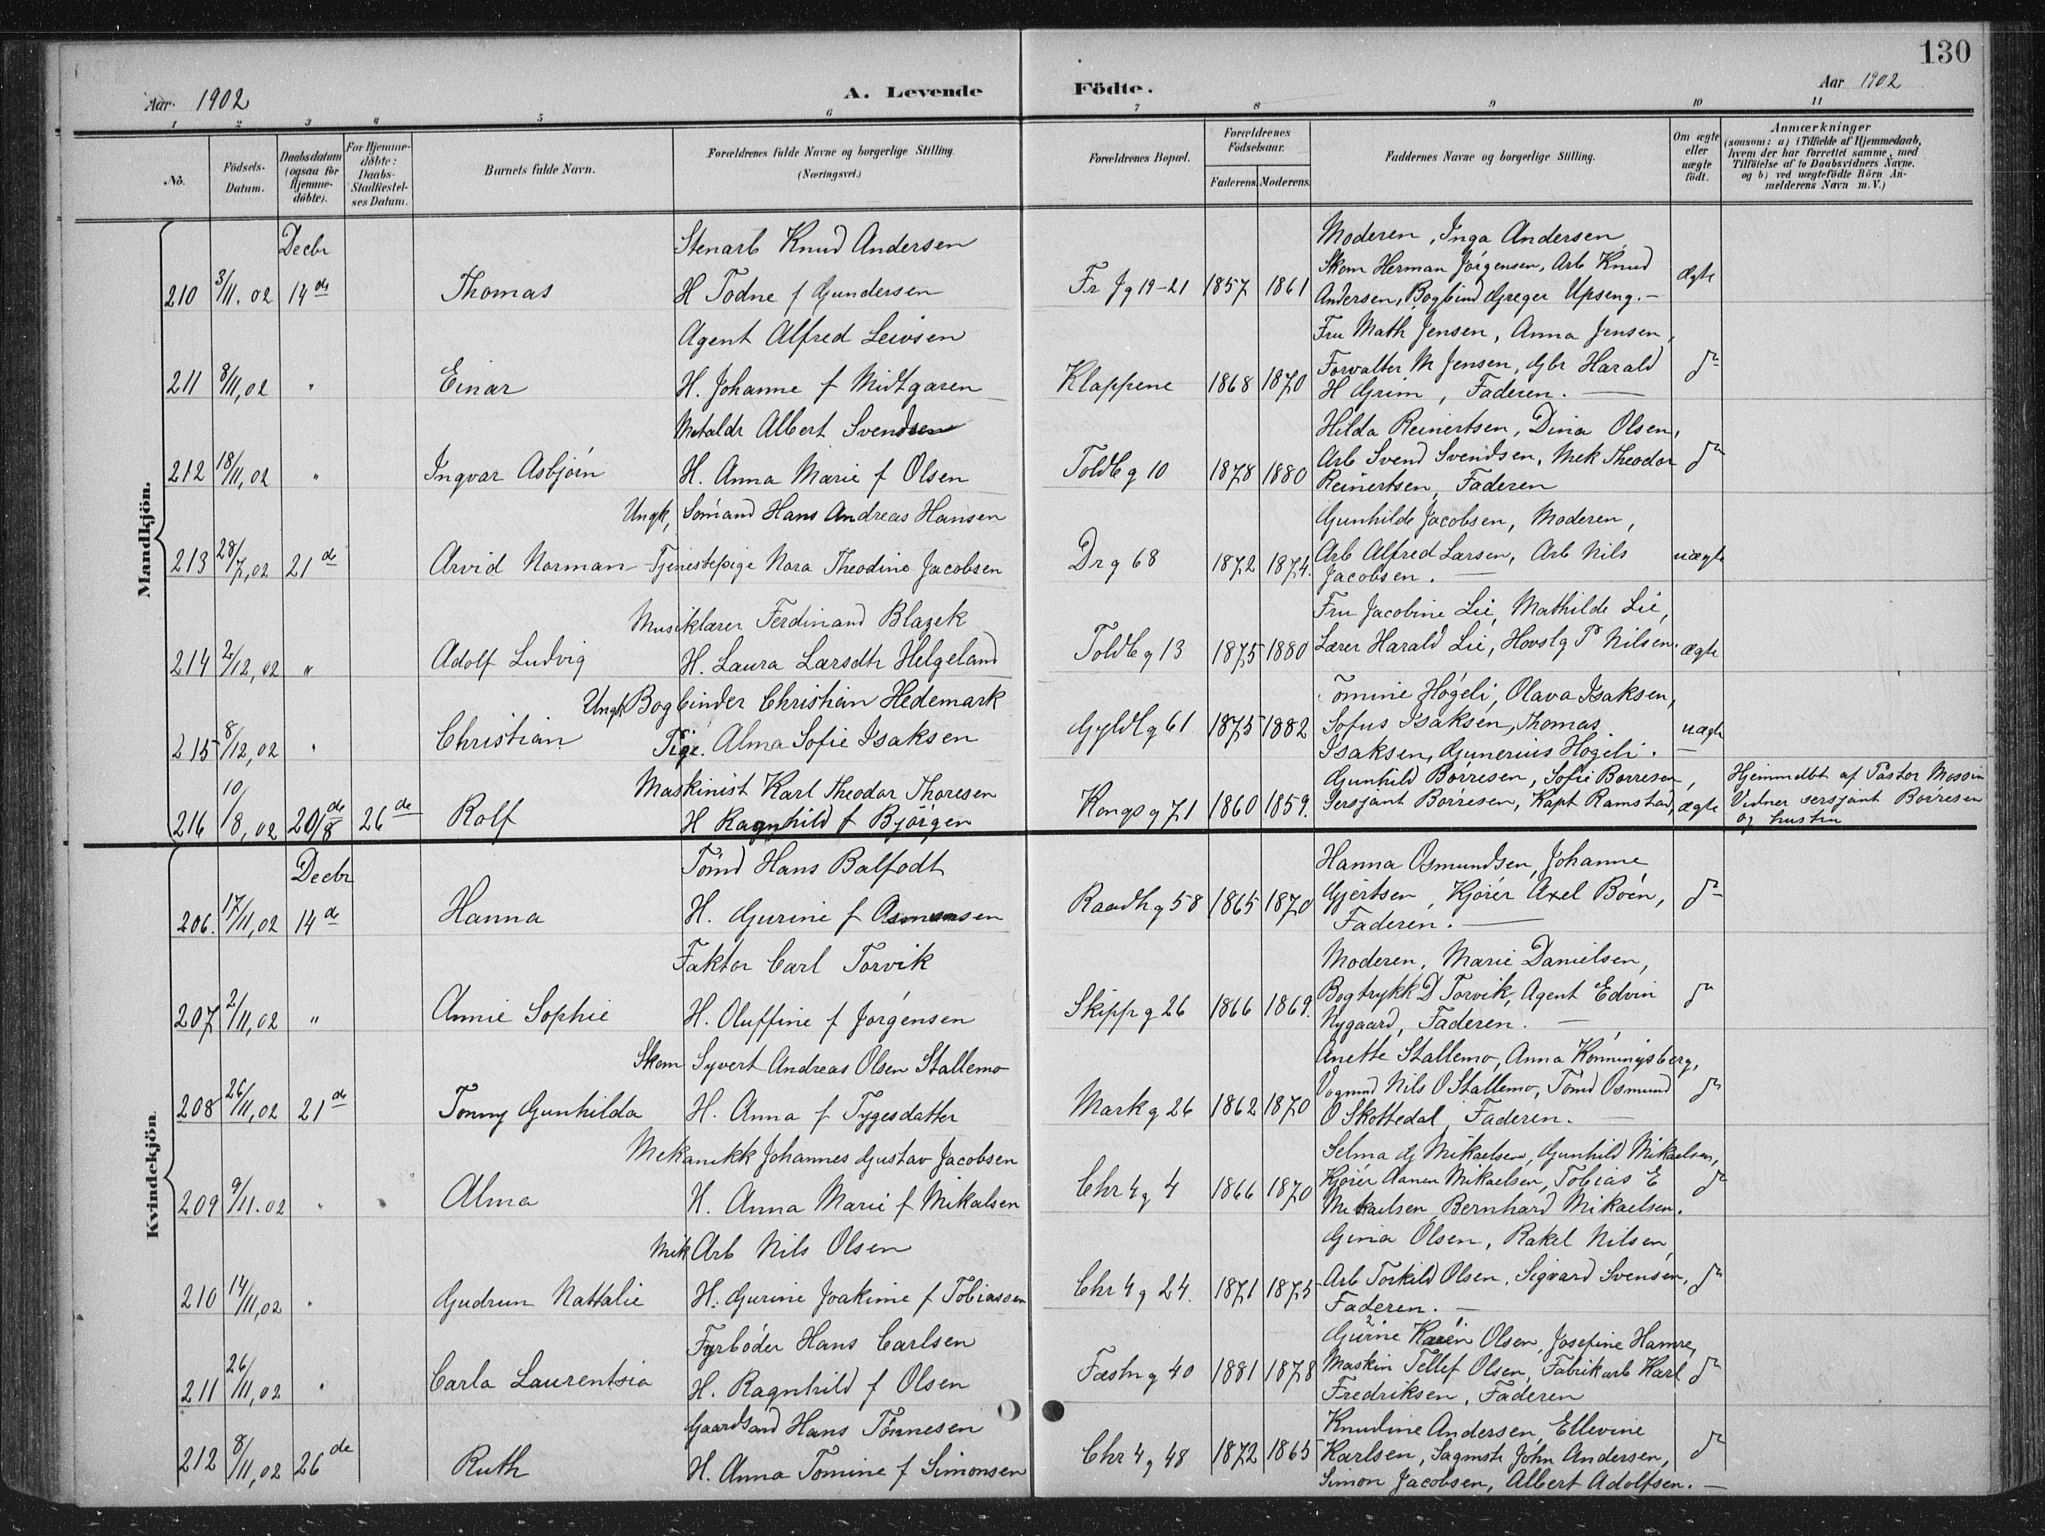 130
Aar 1902 A. Levende Födte. Aar 1902
1 2 3 4 5 6 7 8 9 10 11
No. Födsels-Datum. Daabsdatum (ogsaa for Hjemme-döbte). For Hjemme-döbte: Daabs-Stadfæstel-ses Datum. Barnets fulde Navn. Forældrenes fulde Navne og borgerlige Stilling. (Næringsvei.) Forældrenes Bopæl. Forældrenes Födselsaar. Faderens. Moderens. Faddernes Navne og borgerlige Stilling. Om ægte eller uægte födt. Anmærkninger (saasom: a) i Tilfælde af Hjemmedaab, hvem der har forrettet samme, med Tilföielse af to Daabsvidners Navne, og b) ved uægtefödte Börn An-melderens Navn m. V.)
Mandkjön.
Decbr Stenarb Knud Andersen Moderen, Inga Andersen,
Skom Herman Jörgensen, Arb Knud
210 3/11.02 14de Thomas H Todne f Gundersen Fr Jg 19-21 1857 1861 Andersen, Bogbind Greger Upseng.- ægte
Agent Alfred Leivsen Fru Math Jensen, Anna Jensen,
Forvalter M Jensen, Gbr Harald
211 8/11,02 " Einar H. Johanne f Midtgaren Klappene 1868 1870 H Grim, Faderen. — do
Metaldr Albert Svendsen Hilda Reinertsen, Dina Olsen,
Arb Svend Svendsen, Mek Theodor
212 18/11,02 " Ingvar Asbjörn H. Anna Marie f Olsen Toldbg 10 1878 1880 Reinertsen, Faderen do
Ungk, Sömand Hans Andreas Hansen Gunhilde Jacobsen, Moderen,
213 28/7,02 21de Arvid Norman Tjenestepige Nora Theodine Jacobsen Drg 68 1872 1874. Arb Alfred Larsen, Arb Nils uægte
Jacobsen. —
Musiklærer Ferdinand Blazek Fru Jacobine Lie, Mathilde Lie,
214 2/12,02 " Adolf Ludvig H. Laura Larsdtr Helgeland Toldbg 13 1875 1880 Lærer Harald Lie, Hovslg P Nilsen. ægte
Ungk Bogbinder Christian Hedemark Tomine Högeli, Olava Isaksen,
215 8/12,02 " Christian Pige. Alma Sofie Isaksen Gyldlg 61 1875 1882 Sofus Isaksen, Thomas uægte
Isaksen, Gunerius Högeli.
Maskinist Karl Theodor Thoresen Gunhild Börresen, Sofie Borresen, Hjemmedbt af Pastor
216 10/8,02 20de/8 26de Rolf H Ragnhild f Björgen Kongsg 71 1860 1859. Sersjant Börresen, Kapt Ramstad, ægte Vidner sersjant Börresen
og hustru
Kvindekjön.
Decbr Tömd Hans Balfodt Hanna Osmundsen, Johanne
206. 17/11,02 14de Hanna H. Gurine f Raadhg 58 1865 1870 Gjertsen, Kjörer Axel Boén, do
Faderen. —
Faktor Carl Torvik Moderen, Marie Danielsen,
207 2/11,02 " Annie Sophie H. Oluffine f Jörgensen Skippg 26 1866 1869. Bogtrykk D Torvik, Agent Edvin do
Nygaard, Faderen. —
Skom Syvert Andreas Olsen Stallemo Anette Stallemo, Anna Könningsberg,
208 26/11,02 21de Tonny Gunhilda H. Anna f Tygesdatter Markg 26 1862 1870 Vognmd Nils O Stallemo, Tömd Osmund do
O Skottedal, Faderen. —
Mekanikk Johannes Gustav Jacobsen Selma G Mikaelsen, Gunhild Mikaelsen,
209 9/11.02 " Alma H. Anna Marie f Mikalsen Chr 4 g 4 1866 1870 Kjörer Aanen Mikaelsen, Tobias E do
Mikaelsen, Bernhard Mikaelsen.
Mek Arb Nils Olsen Gina Olsen, Rakel Nilsen,
210 14/11,02 " Gudrun Nathalie H. Gurine Joakime f Tobiassen Chr 4 g 24. 1871 1875 Arb Torkild Olsen, Sigvard Svensen, do
Faderen. —
Fyrböder Hans Carlsen Gurine Karen Olsen, Josefine Hamre,
211 26/11,02 " Carla Laurentsia H. Ragnhild f Olsen Fæstng 40 1881 1878 Maskin Tellef Olsen, Fabrikarb Karl do
Fredriksen, Faderen
Gaardsand Hans Tönnesen Knudine Andersen, Ellevine
212 8/11,02 26de Ruth H. Anna Tomine f Simonsen Chr 4 g 48 1872 1865 Karlsen, Sagmstr John Andersen, do
Simon Jacobsen, Albert Adolfsen. —